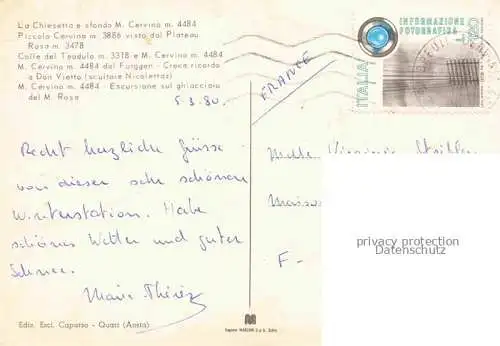 La Chiesetta e sfondo M. Cervino m. 4484
Piccolo Cervino m. 3886 visto dal Plateau
Rosa m. 3478
Colle del Teodulo m. 3318 e M. Cervino m. 4484
M. Cervino m. 4484 del Furggen - Croce ricordo
a Don Vietto (scultore Nicolettaz)
M. Cervino m. 4484 - Escursione sul ghiacciaio
del M. Rosa
INFORMAZIONE
FOTOGRAFICA
ITALIA
FRANCE
5.3.80.
Recht herzliche Grüsse
von dieser sehr schönen
Winterstation. Habe
schönes Wetter und guter
Schnee.
Marie Thérèz
Melle
F-
privacy protection
Datenschutz
Ediz. Escl. Caputso - Quart (Aosta)